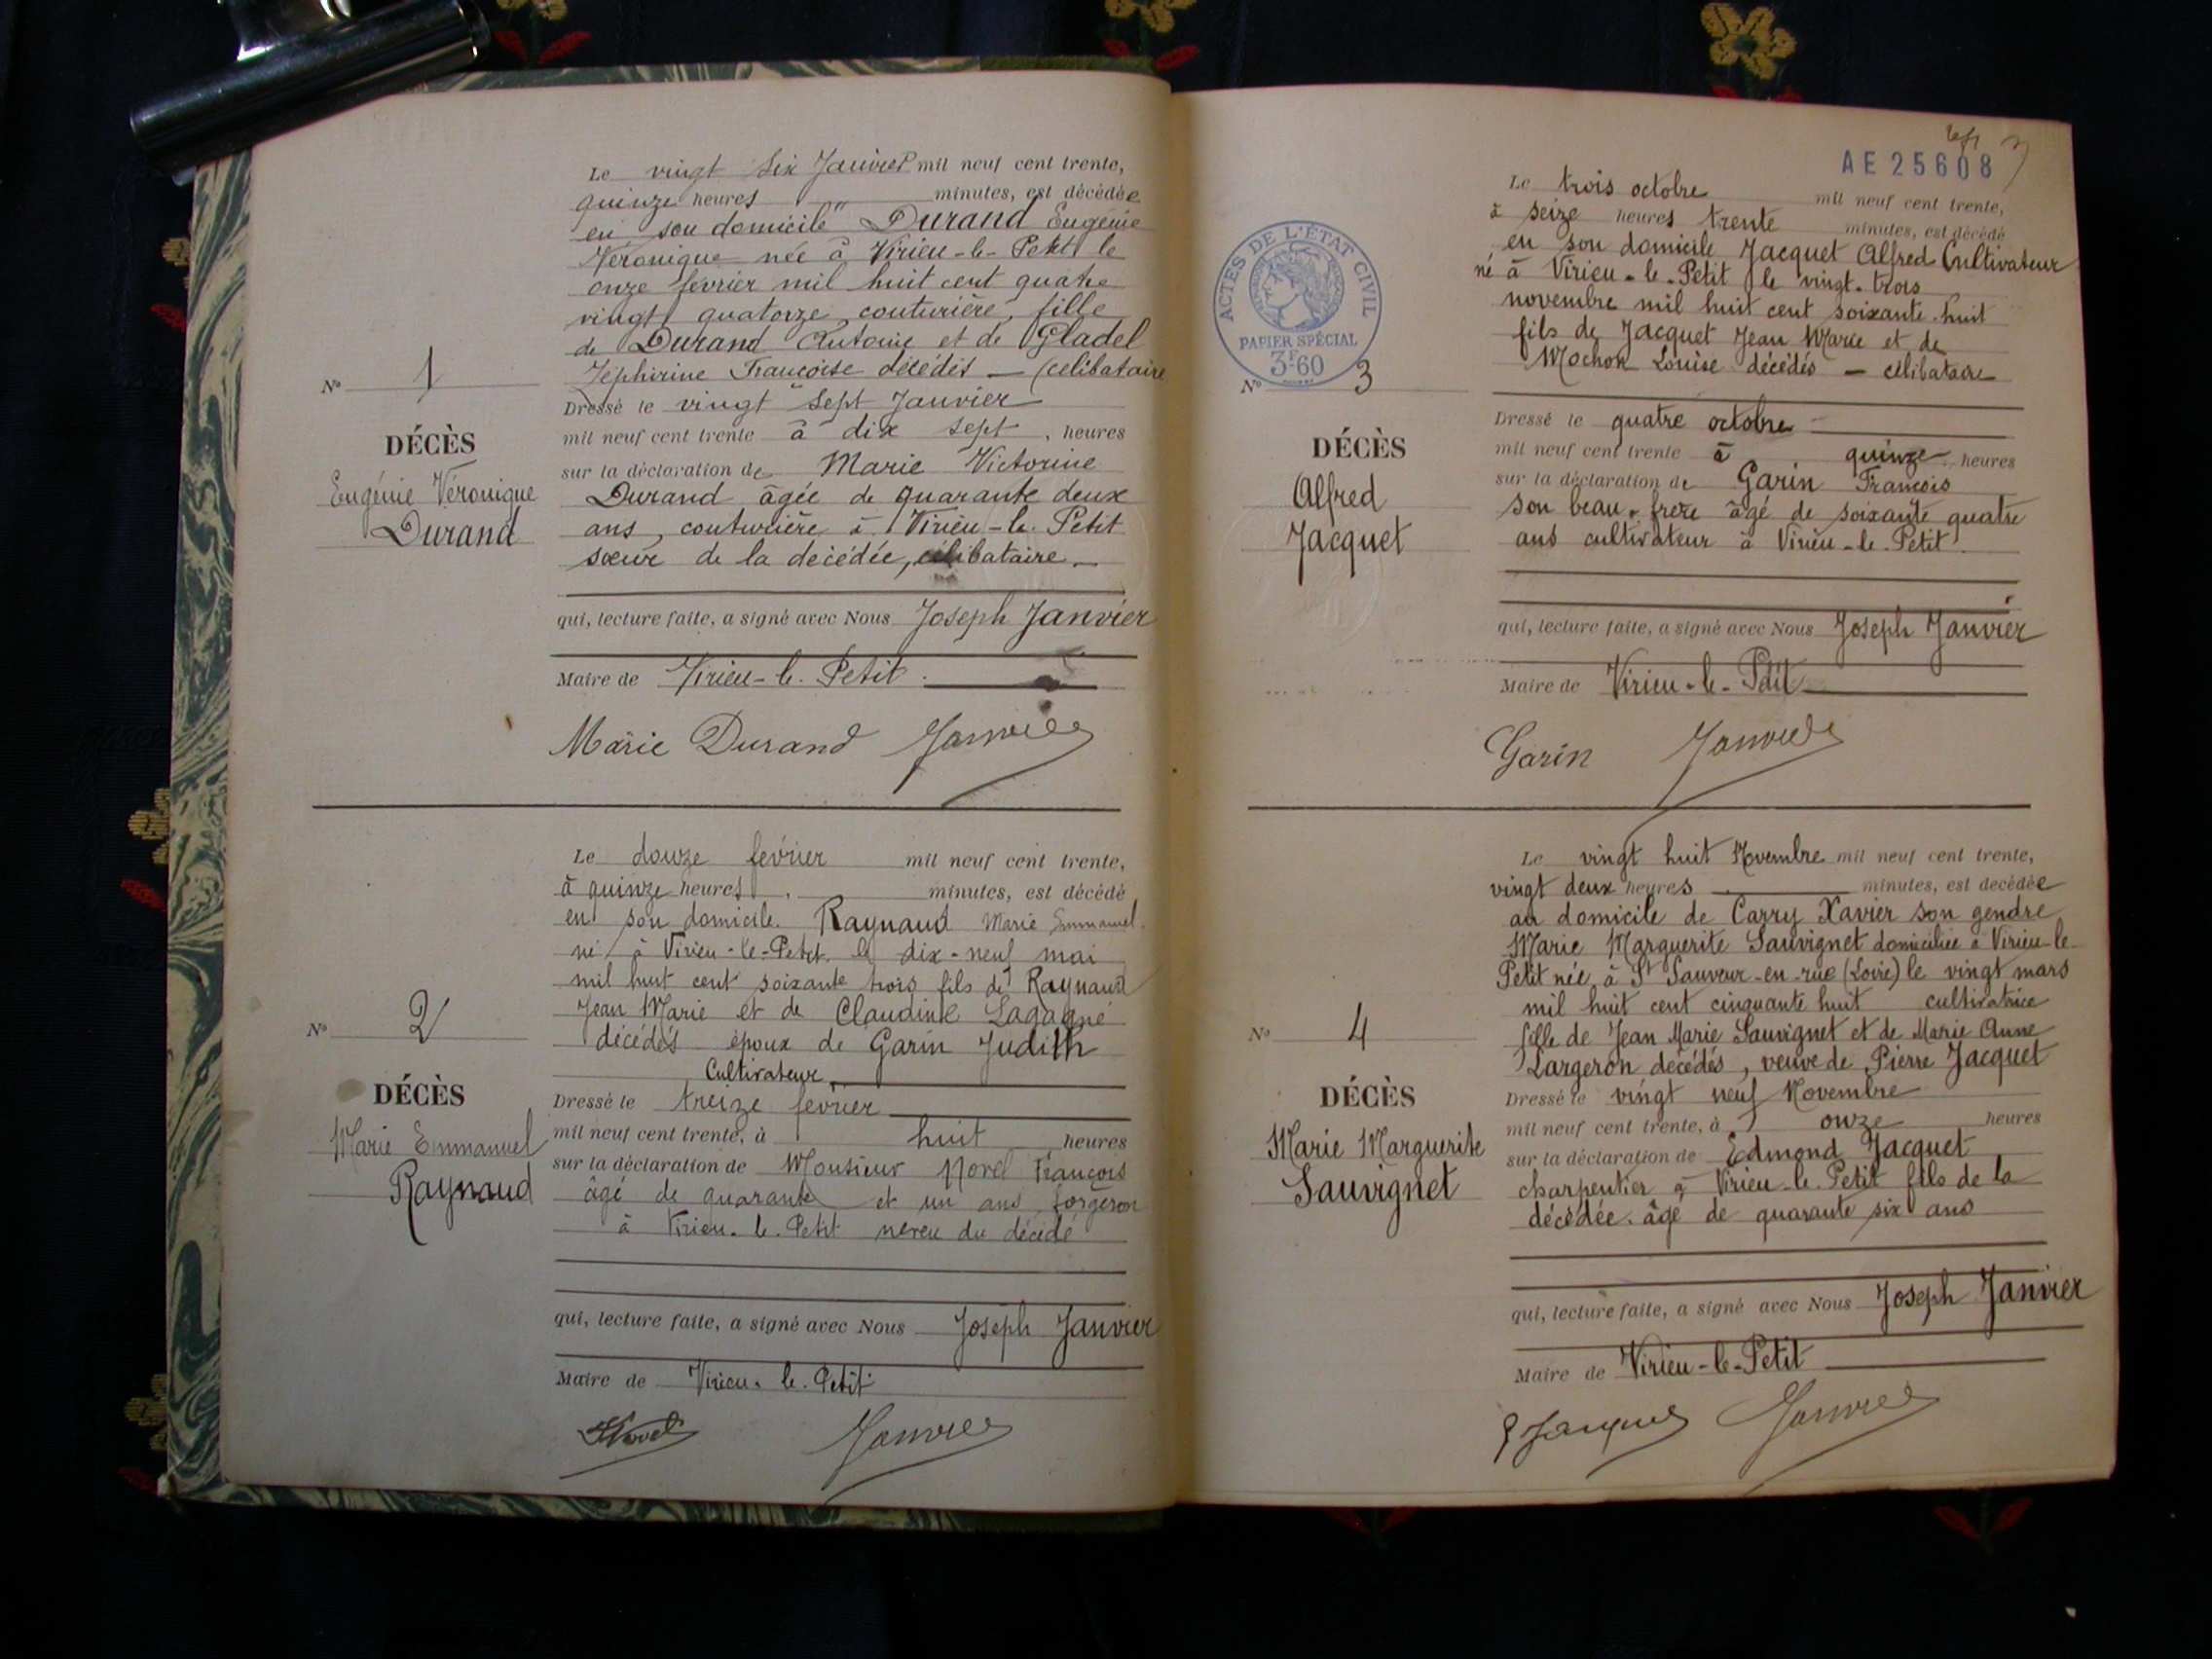 Le vingt six Janvier mil neuf cent trente,
quinze heures minutes, est décédée
en son domicile Durand Eugénie
Véronique née à Virieu-le-Petit le
onze février mil huit cent quatre
vingt quatorze, couturière, fille
de Durand Antoine et de Gladel
Zéphirine Françoise décédés — (célibataire
N° 1
DÉCÈS
Eugénie Véronique
Durand
Dressé le vingt sept Janvier
mil neuf cent trente à dix sept, heures
sur la déclaration de Marie Victorine
Durand âgée de quarante deux
ans, couturière à Virieu-le-Petit
sœur de la décédée, célibataire —
qui, lecture faite, a signé avec Nous Joseph Janvier
Maire de Virieu-le-Petit.
Marie Durand Janvier
Le douze février mil neuf cent trente,
à quinze heures, minutes, est décédé
en son domicile Raynaud Marie Emmanuel
né à Virieu-le-Petit le dix-neuf mai
mil huit cent soixante trois fils de Raynaud
Jean Marie et de Claudine
décédés époux de Garin Judith
Cultivateur
N° 2
DÉCÈS
Marie Emmanuel
Raynaud
Dressé le treize février
mil neuf cent trente, à huit heures
sur la déclaration de Monsieur Novel François
âgé de quarante et un ans, forgeron
à Virieu-le-Petit neveu du décédé
qui, lecture faite, a signé avec Nous Joseph Janvier
Maire de Virieu-le-Petit
Novel Janvier
AE 25608
ACTES DE L'ÉTAT CIVIL
PAPIER SPÉCIAL
3F60
Le trois octobre mil neuf cent trente,
à seize heures trente minutes, est décédé
en son domicile Jacquet Alfred Cultivateur
né à Virieu-le-Petit le vingt-trois
novembre mil huit cent soixante-huit
fils de Jacquet Jean Marie et de
Mochon Louise décédés — célibataire
N° 3
DÉCÈS
Alfred
Jacquet
Dressé le quatre octobre
mil neuf cent trente à quinze heures
sur la déclaration de Garin François
son beau-frère âgé de soixante quatre
ans cultivateur à Virieu-le-Petit.
qui, lecture faite, a signé avec Nous Joseph Janvier
Maire de Virieu-le-Petit
Garin Janvier
Le vingt huit Novembre mil neuf cent trente,
vingt deux heures minutes, est decédée
au domicile de Carry Xavier son gendre
Marie Marguerite Sauvignet domiciliée à Virieu-le-
Petit née à St Sauveur-en-rue (Loire) le vingt mars
mil huit cent cinquante huit cultivatrice
fille de Jean Marie Sauvignet et de Marie Anne
Largeron décédés, veuve de Pierre Jacquet
N° 4
DÉCÈS
Marie Marguerite
Sauvignet
Dressé le vingt neuf Novembre
mil neuf cent trente, à onze heures
sur la déclaration de Edmond Jacquet
charpentier à Virieu-le-Petit fils de la
décédée. âgé de quarante six ans
qui, lecture faite, a signé avec Nous Joseph Janvier
Maire de Virieu-le-Petit
E Jacquet Janvier